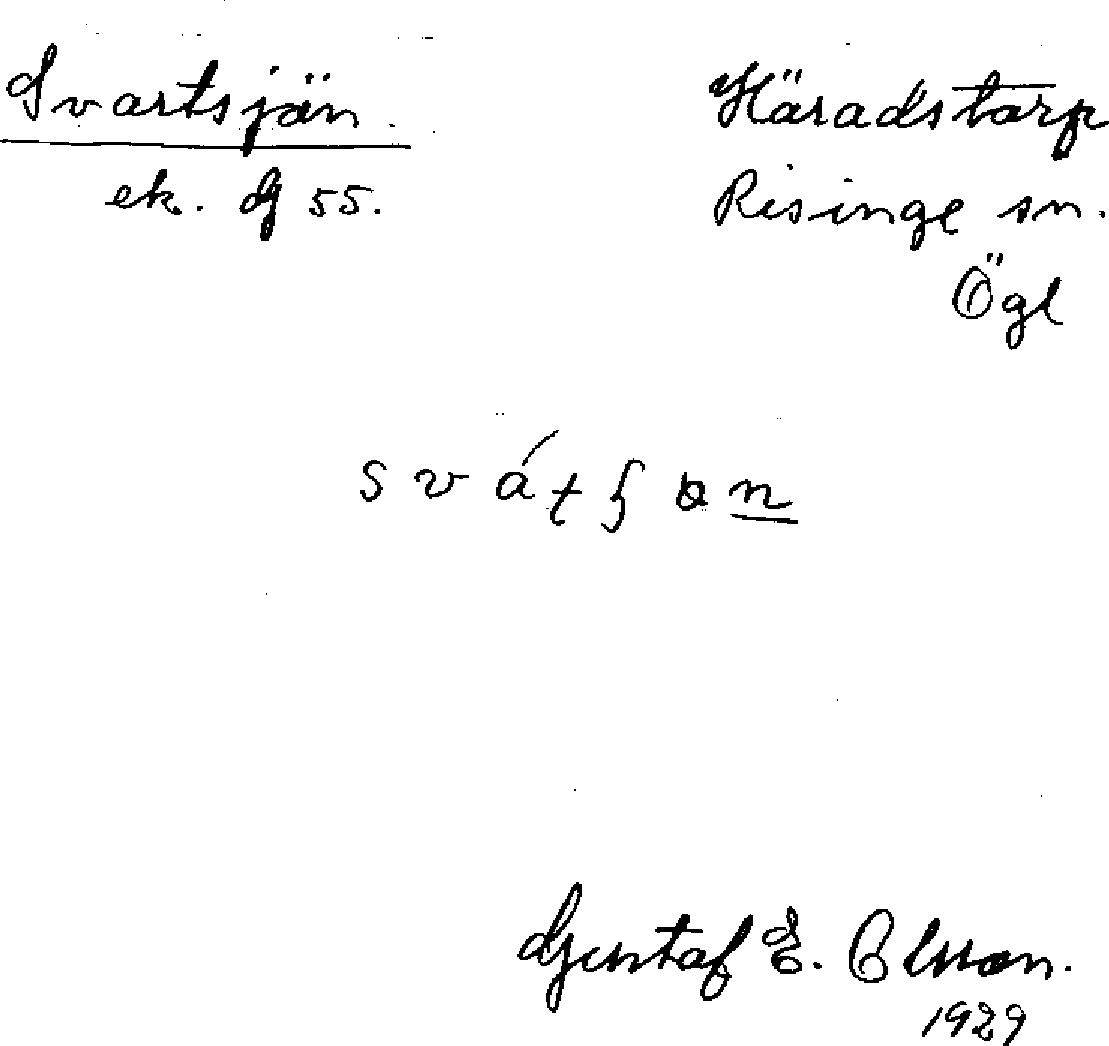 Svartsjön.
ek. G 55.
Häradstorp
Risinge sn.
Ögl
Gustaf E. Olsson.
1929